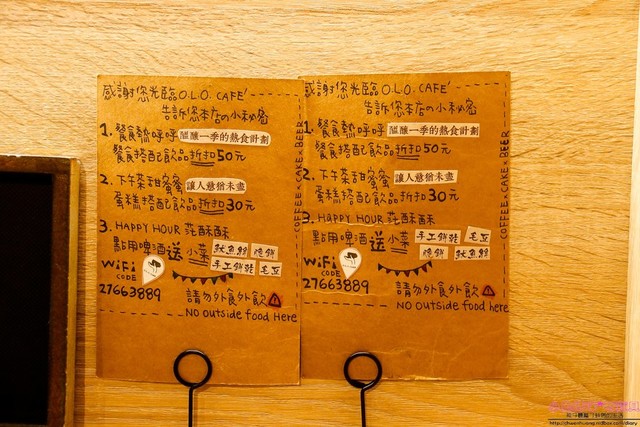 感謝您光臨O.L.O. CAFE'
告訴您本店の小秘密
1. 餐食熱呼呼 醞釀一季的熱食計劃
餐食搭配飲品折扣50元
2. 下午茶甜蜜蜜 讓人意猶未盡
蛋糕搭配飲品折扣30元
3. HAPPY HOUR 茫酥酥
點用啤酒送小菜 魷魚絲
手工餅乾 毛豆
WiFi
CODE
27663889
請勿外食外飲
NO outside food Here
COFFEE × CAKE × BEER
感謝您光臨O.L.O. CAFE'
告訴您本店の小秘密
1. 餐食熱呼呼 醞釀一季的熱食計劃
餐食搭配飲品折扣50元
2. 下午茶甜蜜蜜 讓人意猶未盡
蛋糕搭配飲品折扣30元
3. HAPPY HOUR 茫酥酥
點用啤酒送小菜 手工餅乾 毛豆
魷魚絲
WiFi
CODE
27663889
請勿外食外飲
NO outside food Here
COFFEE × CAKE × BEER